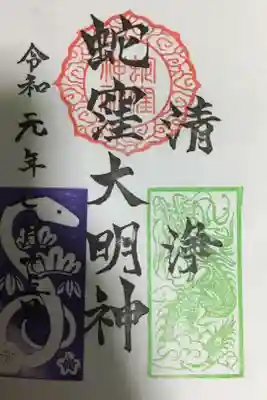 清浄
蛇窪大明神
令和元年七月